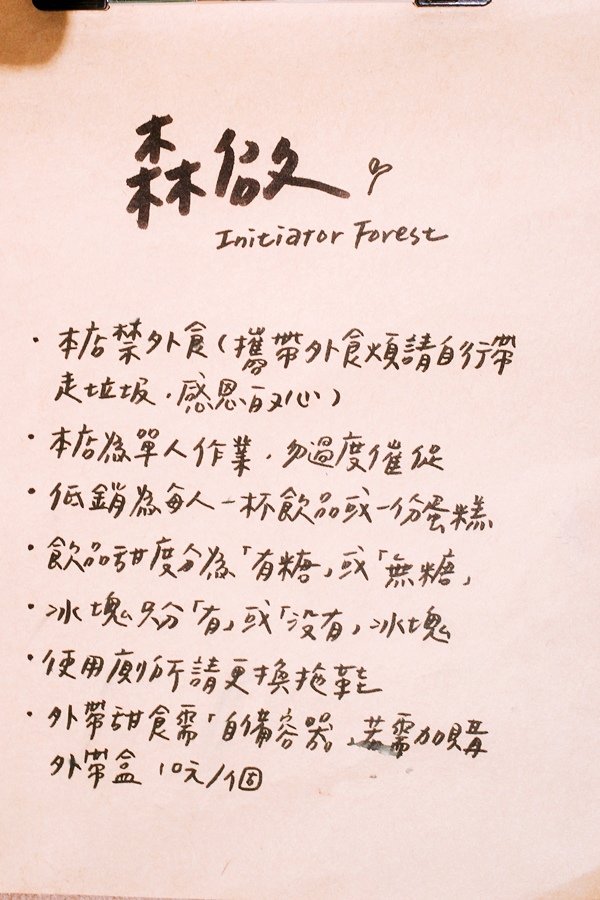 森啟
Initiator Forest
· 本店禁外食(攜帶外食煩請自行帶
走垃圾,感恩的心)
· 本店為單人作業,勿過度催促
· 低銷為每人一杯飲品或一份蛋糕
· 飲品甜度分為「有糖」或「無糖」
· 冰塊只分「有」或「沒有」冰塊
· 使用廁所請更換拖鞋
· 外帶甜食需「自備容器」,若需加購
外帶盒 10元/個